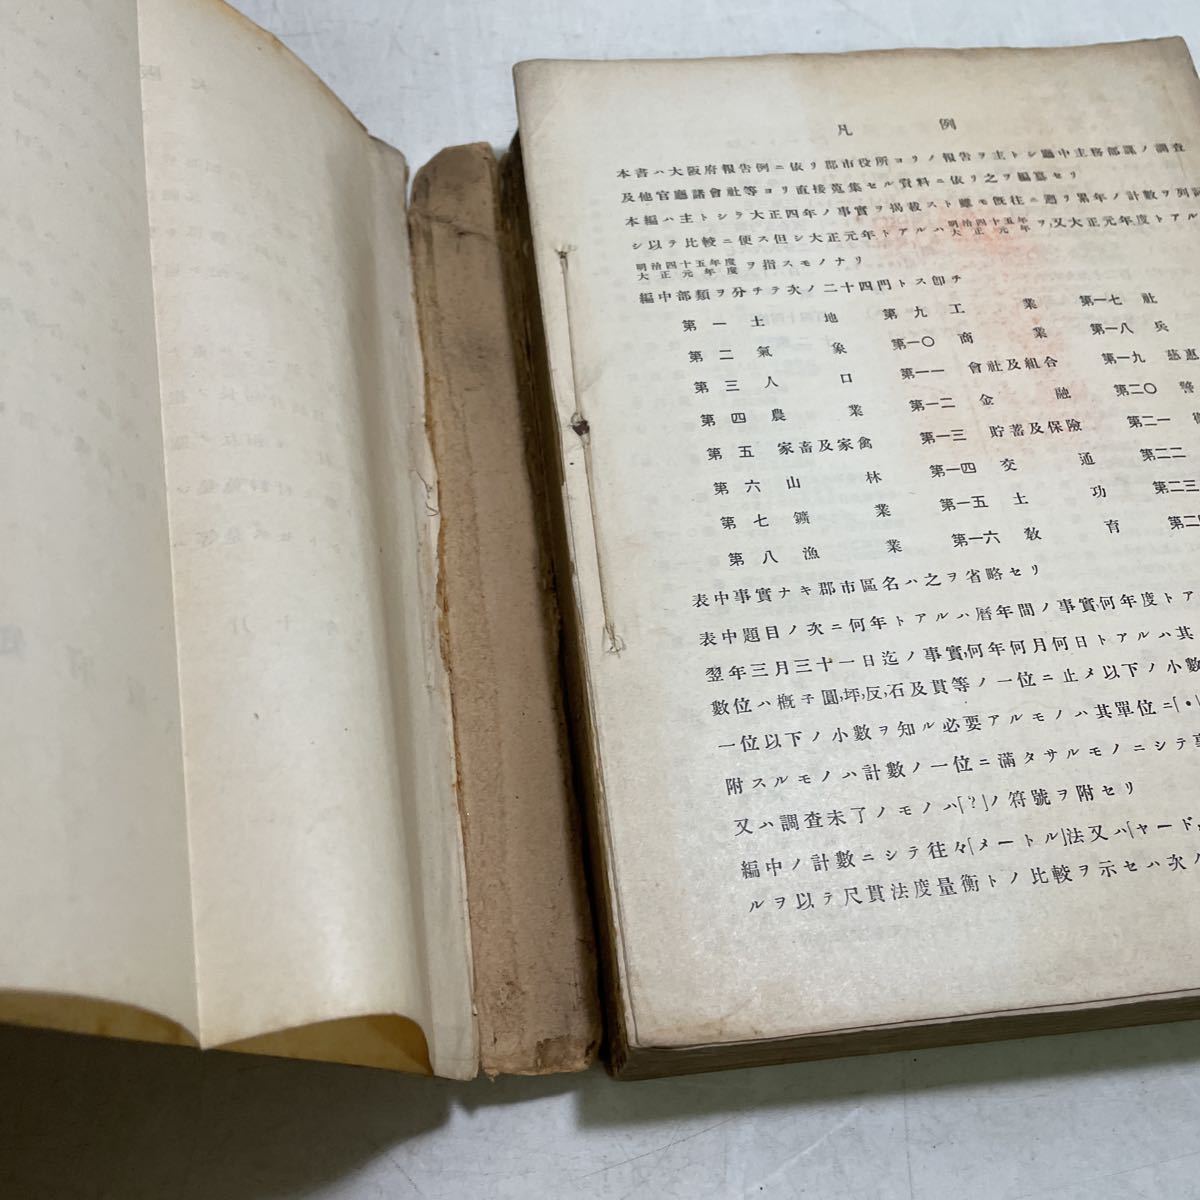 凡例
本書ハ大阪府報告例ニ依リ郡市役所ヨリノ報告ヲ主トシ廳中主務部課ノ調査
及他官廳諸會社等ヨリ直接蒐集セル資料ニ依リ之ヲ編纂セリ
本編ハ主トシテ大正四年ノ事實ヲ掲載スト雖モ旣往ニ遡リ累年ノ計數ヲ列
シ以テ比較ニ便ス但シ大正元年トアルハ明治四十五年大正元年ヲ、又大正元年度トアル
明治四十五年度大正元年度ヲ指スモノナリ
編中部類ヲ分チテ次ノ二十四門トス卽チ
第一 土地 第九 工業 第一七 社
第二 氣象 第一〇 商業 第一八 兵
第三 人口 第一一 會社及組合 第一九 慈惠
第四 農業 第一二 金融 第二〇 警
第五 家畜及家禽 第一三 貯蓄及保險 第二一
第六 山林 第一四 交通 第二二
第七 鑛業 第一五 土功 第二三
第八 漁業 第一六 敎育
表中事實ナキ郡市區名ハ之ヲ省略セリ
表中題目ノ次ニ何年トアルハ曆年間ノ事實、何年度トア
翌年三月三十一日迄ノ事實、何年何月何日トアルハ其
數位ハ槪子圓、坪、反、石及貫等ノ一位ニ止メ以下ノ小數
一位以下ノ小數ヲ知ル必要アルモノハ其單位ニ「・」
附スルモノハ計數ノ一位ニ滿タサルモノニシテ
又ハ調査未了ノモノハ「?」ノ符號ヲ附セリ
編中ノ計數ニシテ往々「メートル」法又ハ「ヤード、
ルヲ以テ尺貫法度量衡トノ比較ヲ示セハ次ノ